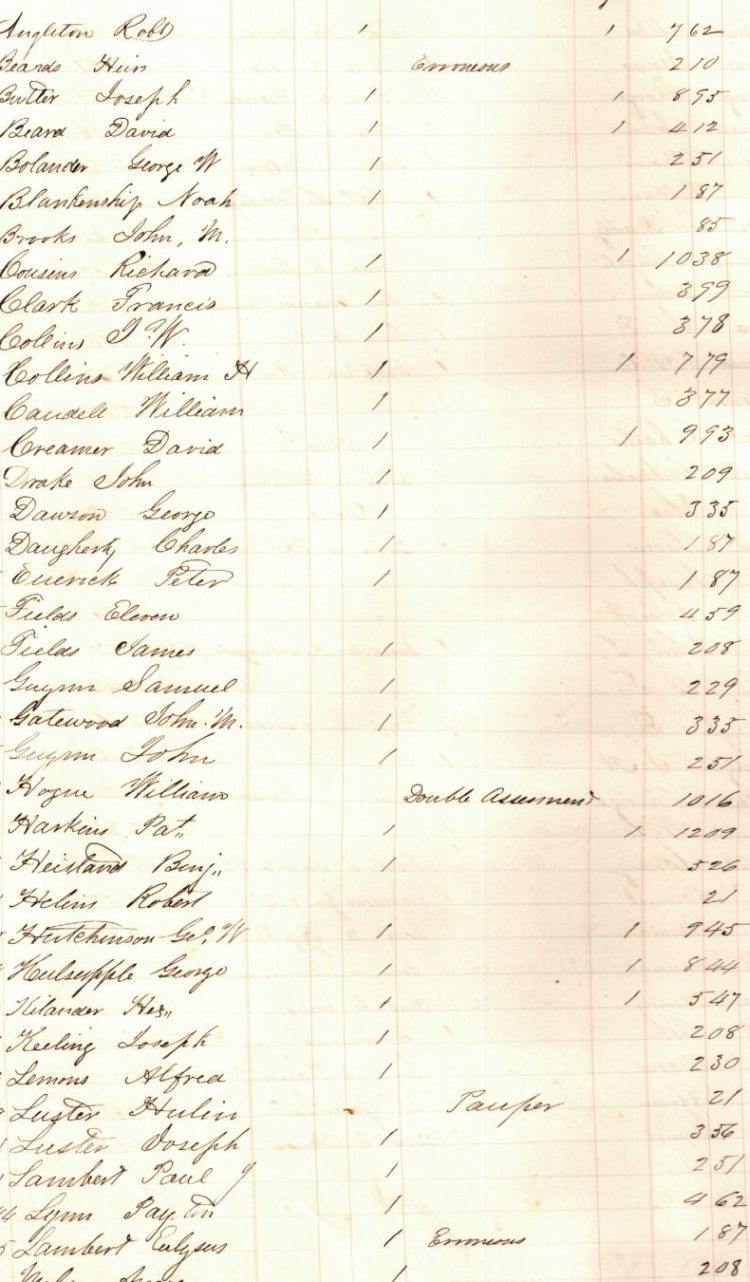 Angleton Robt 1 1 762
Beards Heirs Erroneous 210
Butler Joseph 1 1 895
Beard David 1 1 412
Bolander George W 1 251
Blankenship Noah 1 187
Brooks John, M. 85
Cousins Richard 1 1 1038
Clark Francis 1 399
Collins J. W. 1 378
Collins William H 1 1 779
Caudell William 1 377
Creamer David 1 1 993
Drake John 1 209
Dawson George 1 335
Daugherty Charles 1 187
Emerick Peter 1 187
Fields Eleven 459
Fields James 1 208
Guynn Samuel 1 229
Gatewood John. M. 1 335
Guynn John 1 251
Hogue William Double Assessment 1016
Harkins Pat,, 1 1 1209
Heistand Benj,, 1 526
Helms Robert 21
Hutchinson Geo. W 1 1 945
Hulsopple George 1 1 844
Kilander Hes,, 1 1 547
Keeling Joseph 1 208
Lemons Alfred 1 230
Luster Hulin Pauper 21
Luster Joseph 1 356
Lambert Paul J 1 251
Lynn Payton 1 462
Lambert Eulysus 1 Erroneous 187
1 208